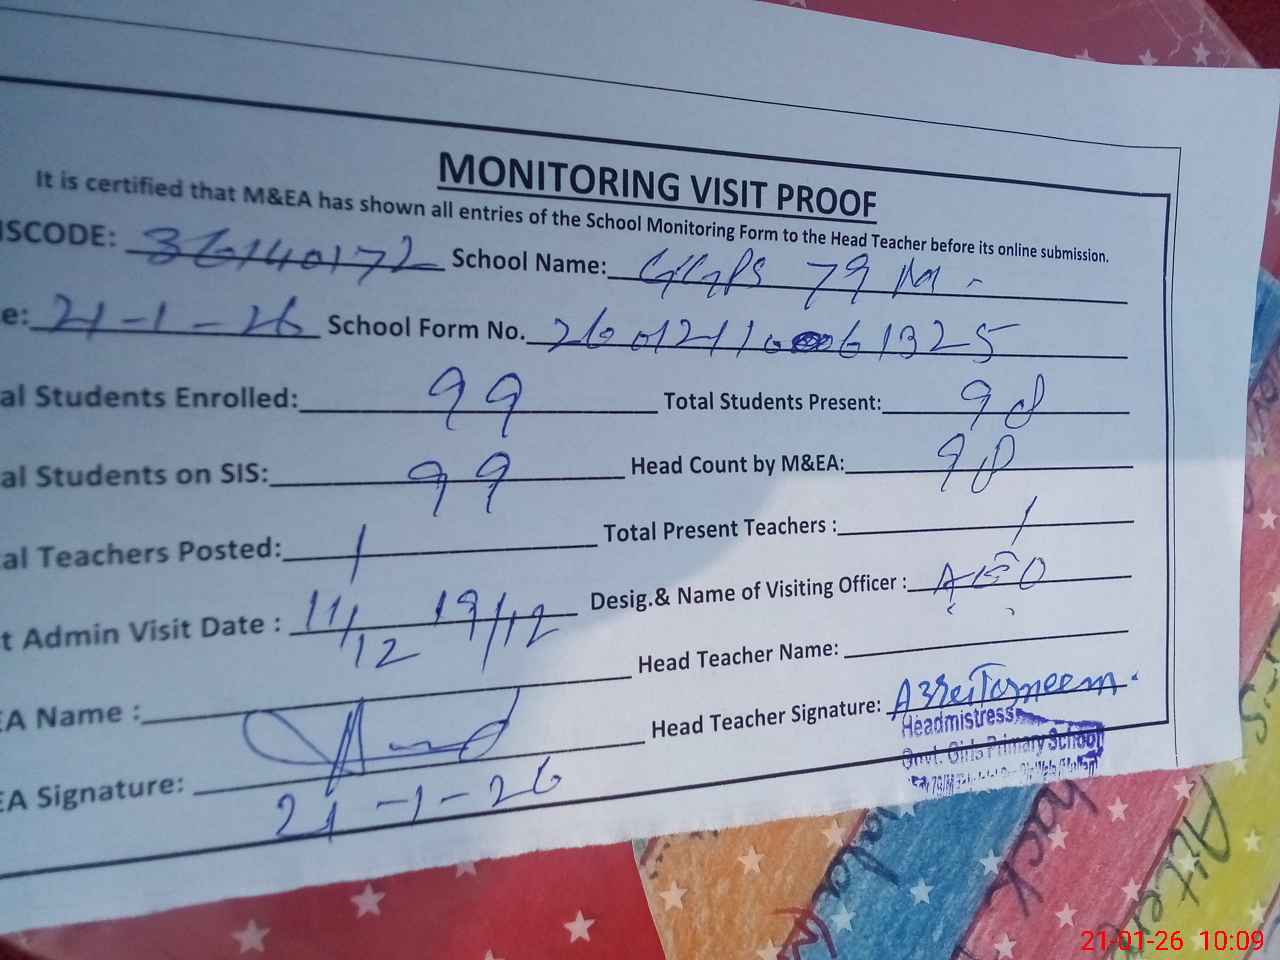 MONITORING VISIT PROOF
It is certified that M&EA has shown all entries of the School Monitoring Form to the Head Teacher before its online submission.
ISCODE: 36140172 School Name: GGPS 79 M-
e: 21-1-26 School Form No. 260121100061325
al Students Enrolled: 99 Total Students Present: 98
al Students on SIS: 99 Head Count by M&EA: 98
al Teachers Posted: 1 Total Present Teachers : 1
t Admin Visit Date : 11/12 19/12 Desig.& Name of Visiting Officer : AEO
Head Teacher Name:
EA Name :
Head Teacher Signature:
Headmistress
Govt. Girls Primary School
EA Signature:
21-1-26
21-01-26 10:09